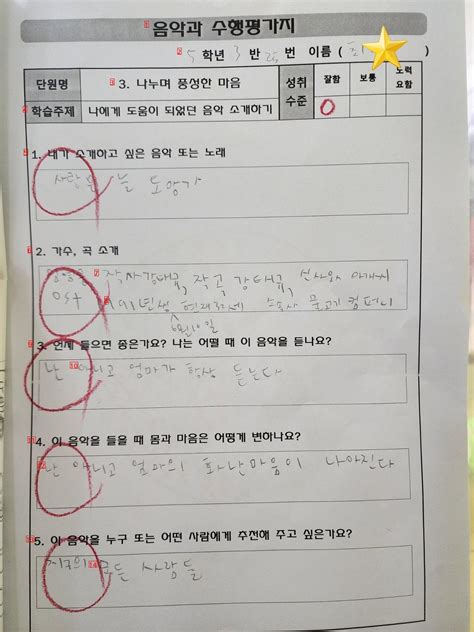 음악과 수행평가지
5 학년 3 반 번 이름 ( )
단원명 3. 나누며 풍성한 마음 성취 수준 잘함 보통 노력 요함
학습주제 나에게 도움이 되었던 음악 소개하기 ○
1. 내가 소개하고 싶은 음악 또는 노래
사랑은 늘 도망가
2. 가수, 곡 소개
작사 강태규, 작곡 강태규, 신사와 아가씨
OST 91년생 현재 소속사 물고기 컴퍼니
6월 16일
3. 언제 들으면 좋은가요? 나는 어떨 때 이 음악을 듣나요?
난 아니고 엄마가 항상 듣는다
4. 이 음악을 들을 때 몸과 마음은 어떻게 변하나요?
난 아니고 엄마의 화난마음이 나아진다
5. 이 음악을 누구 또는 어떤 사람에게 추천해 주고 싶은가요?
지구의 모든 사람들